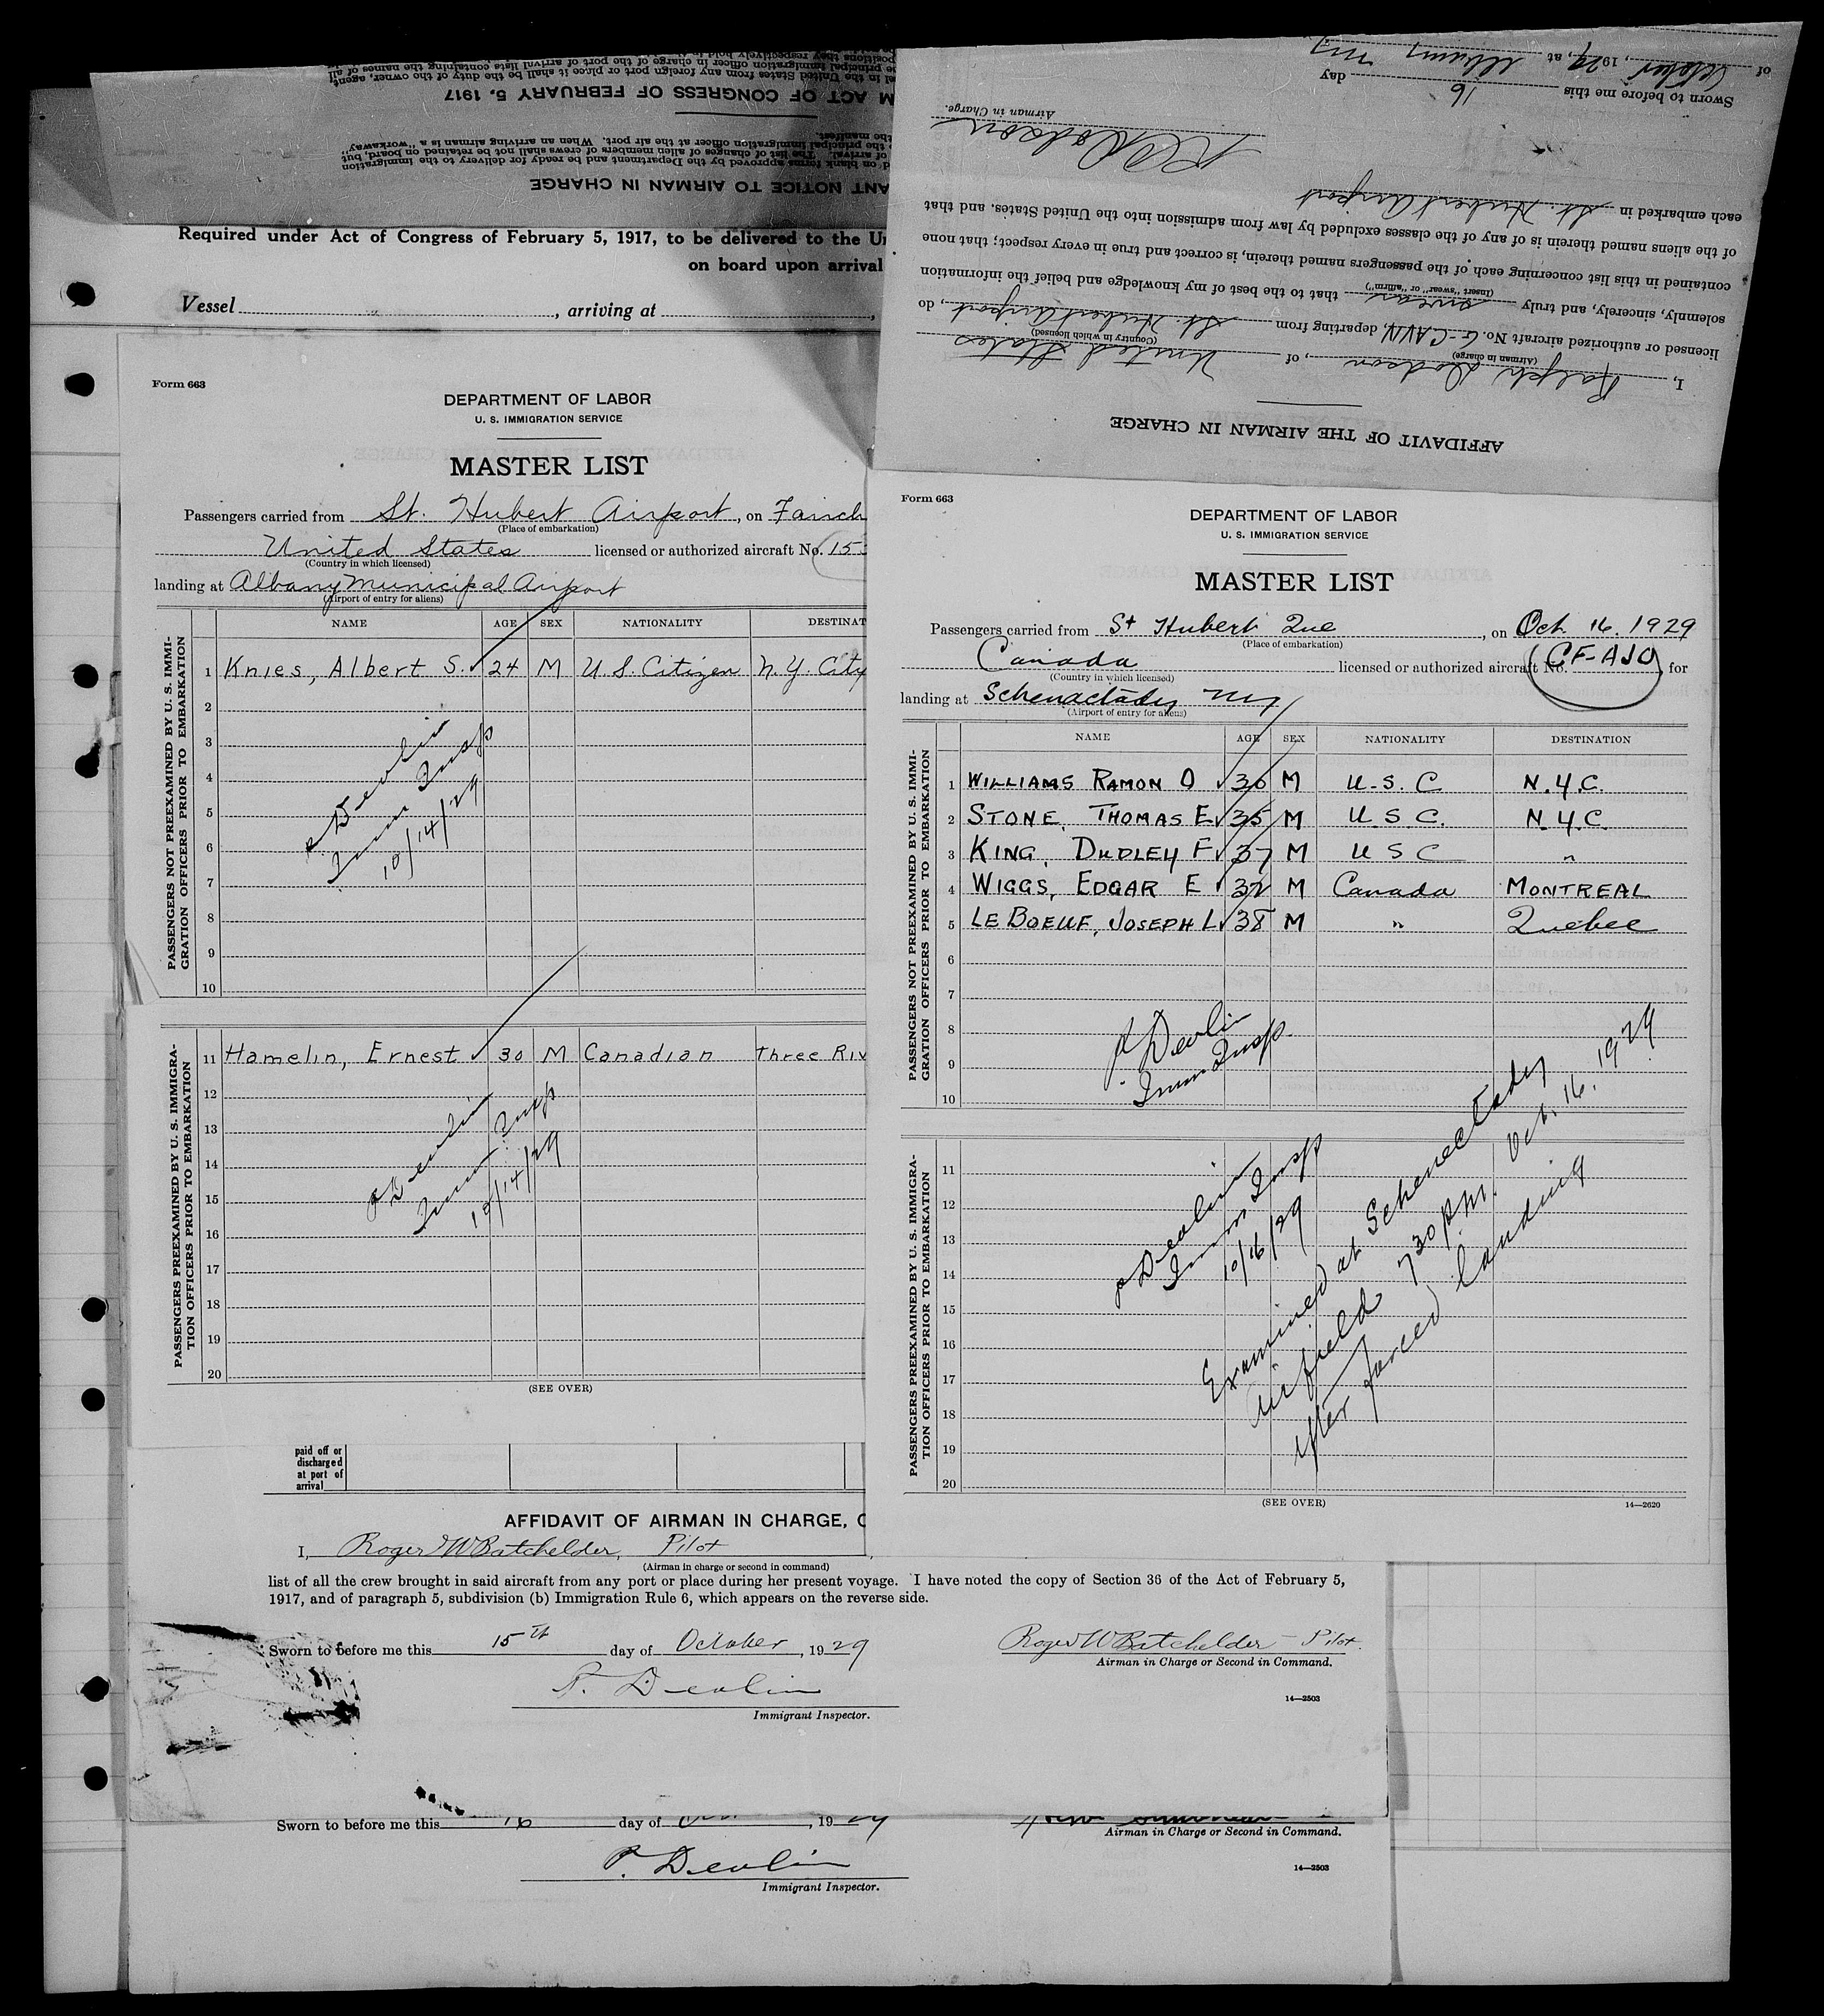 positions they respectively hold in
in the United States from any foreign port or place it shall be the duty of the owner, agent,
principal immigration officer in charge of the port of arrival lists containing the names of all
M ACT OF CONGRESS OF FEBRUARY 5, 1917
the manifest.
the principal immigration officer at the air port. When an arriving airman is a "workaway"
of arrival. The list of changes of alien members of crews shall not be retained on board, but
d on blank forms approved by the Department and be ready for delivery to the immigration
ANT NOTICE TO AIRMAN IN CHARGE
Required under Act of Congress of February 5, 1917, to be delivered to the U
on board upon arrival
Vessel , arriving at ,
Form 663
DEPARTMENT OF LABOR
U. S. IMMIGRATION SERVICE
MASTER LIST
Passengers carried from St. Hubert Airport, on Fairch
(Place of embarkation)
United States licensed or authorized aircraft No. 15
(Country in which licensed)
landing at Albany Municipal Airport
(Airport of entry for aliens)
PASSENGERS NOT PREEXAMINED BY U. S. IMMI-
GRATION OFFICERS PRIOR TO EMBARKATION
NAME AGE SEX NATIONALITY DESTINAT
1 Knies, Albert S. ✓ 24 M U S. Citizen N.Y. City
2
3
4
5
6
7
8
9
10
P Devlin
Imm Insp
10/14/29
PASSENGERS PREEXAMINED BY U. S. IMMIGRA-
TION OFFICERS PRIOR TO EMBARKATION
11 Hamelin, Ernest ✓ 30 M Canadian Three Riv
12
13
14
15
16
17
18
19
20
P Devlin
Imm. Insp
10/14/29
(SEE OVER)
paid off or
discharged
at port of
arrival
AFFIDAVIT OF AIRMAN IN CHARGE, O
I, Roger W Batchelder, Pilot
(Airman in charge or second in command)
list of all the crew brought in said aircraft from any port or place during her present voyage. I have noted the copy of Section 36 of the Act of February 5,
1917, and of paragraph 5, subdivision (b) Immigration Rule 6, which appears on the reverse side.
Sworn to before me this 15th day of October, 1929
Roger W Batchelder - Pilot.
Airman in Charge or Second in Command.
P. Devlin
Immigrant Inspector.
14—2503
Sworn to before me this 16 day of Oct , 1929
Airman in Charge or Second in Command.
P. Devlin
Immigrant Inspector.
14—2503
AFFIDAVIT OF THE AIRMAN IN CHARGE
I, Ralph Dodson, of United States
(Airman in charge) (Country in which licensed)
licensed or authorized aircraft No. G-CAVN, departing from St. Hubert Airport, do
solemnly, sincerely, and truly swear that to the best of my knowledge and belief the information
(Insert "swear" or "affirm")
contained in this list concerning each of the passengers named therein, is correct and true in every respect; that none
of the aliens named therein is of any of the classes excluded by law from admission into the United States, and that
each embarked in St. Hubert Airport
R Dodson
Airman in Charge.
Sworn to before me this 16 day
of October, 1929, at Albany NY
Form 663
DEPARTMENT OF LABOR
U. S. IMMIGRATION SERVICE
MASTER LIST
Passengers carried from St Hubert Que, on Oct 16. 1929
(Place of embarkation)
Canada licensed or authorized aircraft No. CF-AJO for
(Country in which licensed)
landing at Schenactady NY
(Airport of entry for aliens)
PASSENGERS NOT PREEXAMINED BY U. S. IMMI-
GRATION OFFICERS PRIOR TO EMBARKATION
NAME AGE SEX NATIONALITY DESTINATION
1 WILLIAMS RAMON O ✓ 30 M U. S. C N.Y.C.
2 STONE, THOMAS E ✓ 35 M U S C. N.Y.C.
3 KING, DUDLEY F ✓ 37 M U S C "
4 WIGGS, EDGAR E ✓ 32 M Canada MONTREAL
5 LE BOEUF, JOSEPH L ✓ 38 M " Quebec
6
7
8
9
10
P Devlin
Imm Insp.
PASSENGERS PREEXAMINED BY U. S. IMMIGRA-
TION OFFICERS PRIOR TO EMBARKATION
11
12
13
14
15
16
17
18
19
20
P Devlin
Imm Insp
10/16/29
Examined at Schenectady
Airfield 7 30 P.M. Oct. 16, 1929
after forced landing
(SEE OVER)
14—2620